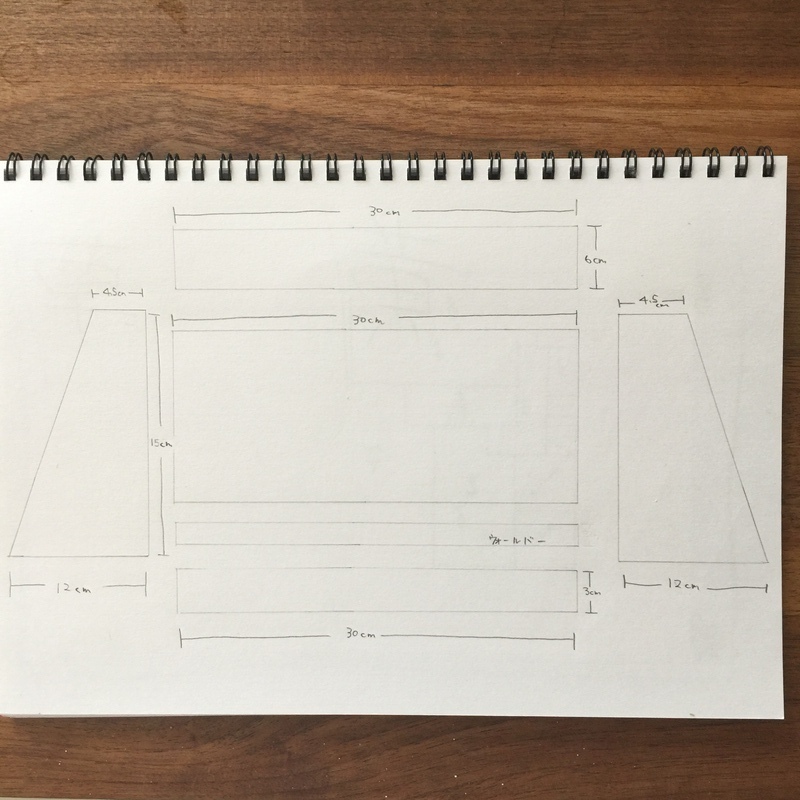 30cm
6cm
4.5cm
4.5cm
30cm
15cm
ウォールバー
3cm
12cm
12cm
30cm